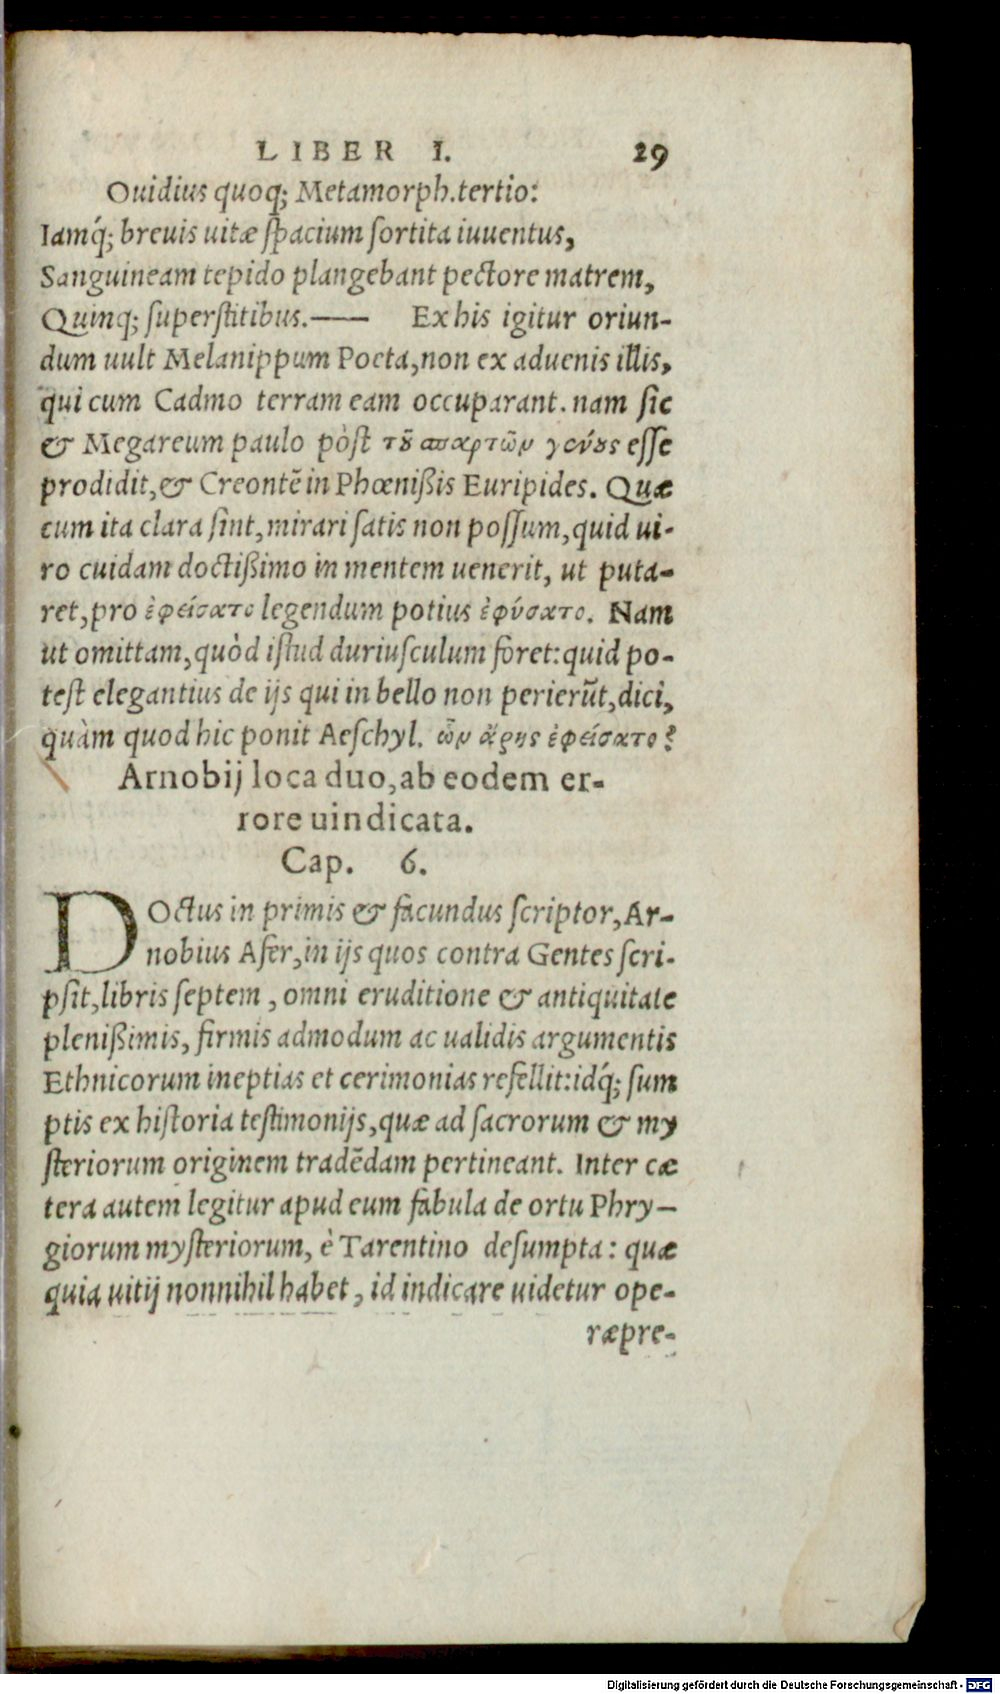 LIBER I. 29
Ouidius quoq; Metamorph.tertio:
Iamq́; breuis uitæ spacium sortita iuuentus,
Sanguineam tepido plangebant pectore matrem,
Quinq; superstitibus.—— Ex his igitur oriun-
dum uult Melanippum Poeta,non ex aduenis illis,
qui cum Cadmo terram eam occuparant. nam sic
& Megareum paulo pòst τ͂ȣ σπαρτῶν γένȣς esse
prodidit,& Creontẽ in Phœnißis Euripides. Quæ
cum ita clara sint,mirari satis non possum,quid ui-
ro cuidam doctißimo in mentem uenerit, ut puta-
ret,pro ἐφείσατο legendum potius ἐφύσατο. Nam
ut omittam,quòd istud duriusculum foret:quid po-
test elegantius de ijs qui in bello non perierũt,dici,
quàm quod hic ponit Aeschyl. ὧν ἄρης ἐφείσατο?
Arnobij loca duo,ab eodem er-
rore uindicata.
Cap. 6.
DOctus in primis & facundus scriptor,Ar-
nobius Afer,in ijs quos contra Gentes scri-
psit,libris septem , omni eruditione & antiquitate
plenißimis, firmis admodum ac ualidis argumentis
Ethnicorum ineptias et cerimonias refellit:idq́; sum
ptis ex historia testimonijs,quæ ad sacrorum & my
steriorum originem tradẽdam pertineant. Inter cæ
tera autem legitur apud eum fabula de ortu Phry-
giorum mysteriorum, è Tarentino desumpta: quæ
quia uitij nonnihil habet , id indicare uidetur ope-
ræpre-
Digitalisierung gefördert durch die Deutsche Forschungsgemeinschaft - DFG